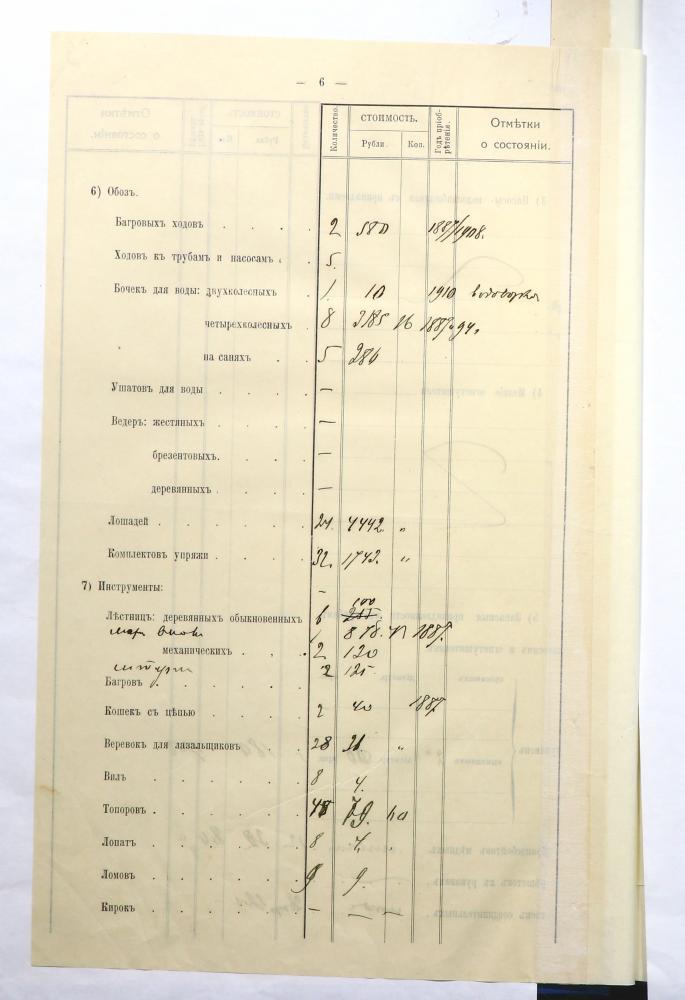 — 6 —
Количество. СТОИМОСТЬ. Годъ пріоб-рѣтенія. Отмѣтки о состояніи.
Рубли. Коп.
6) Обозъ.
Багровыхъ ходовъ . . . . 2 580 1887/1908.
Ходовъ къ трубамъ и насосамъ . . 5.
Бочекъ для воды: двухколесныхъ . 1. 10 1910
четырехколесныхъ . 8 3185 26
на саняхъ . . 5 286
Ушатовъ для воды . . . . —
Ведеръ: жестяныхъ . . . . —
брезентовыхъ. . . . —
деревянныхъ . . . . —
Лошадей . . . . . . 24. 4442. „
Комплектовъ упряжи . . . . 32. 1742. „
7) Инструменты: —
Лѣстницъ: деревянныхъ обыкновенныхъ 6 100
1 878. 1887.
механическихъ . . . 2 120
2 125
Багровъ . . . . . .
Кошекъ съ цѣпью . . . . . 2 40 1887
Веревокъ для лазальщиковъ . . 28 „
Вилъ . . . . . . 8 4.
Топоровъ . . . . . . 48
Лопатъ . . . . . . 8 4.
Ломовъ . . . . . . 9 9.
Кирокъ . . . . . . — — —